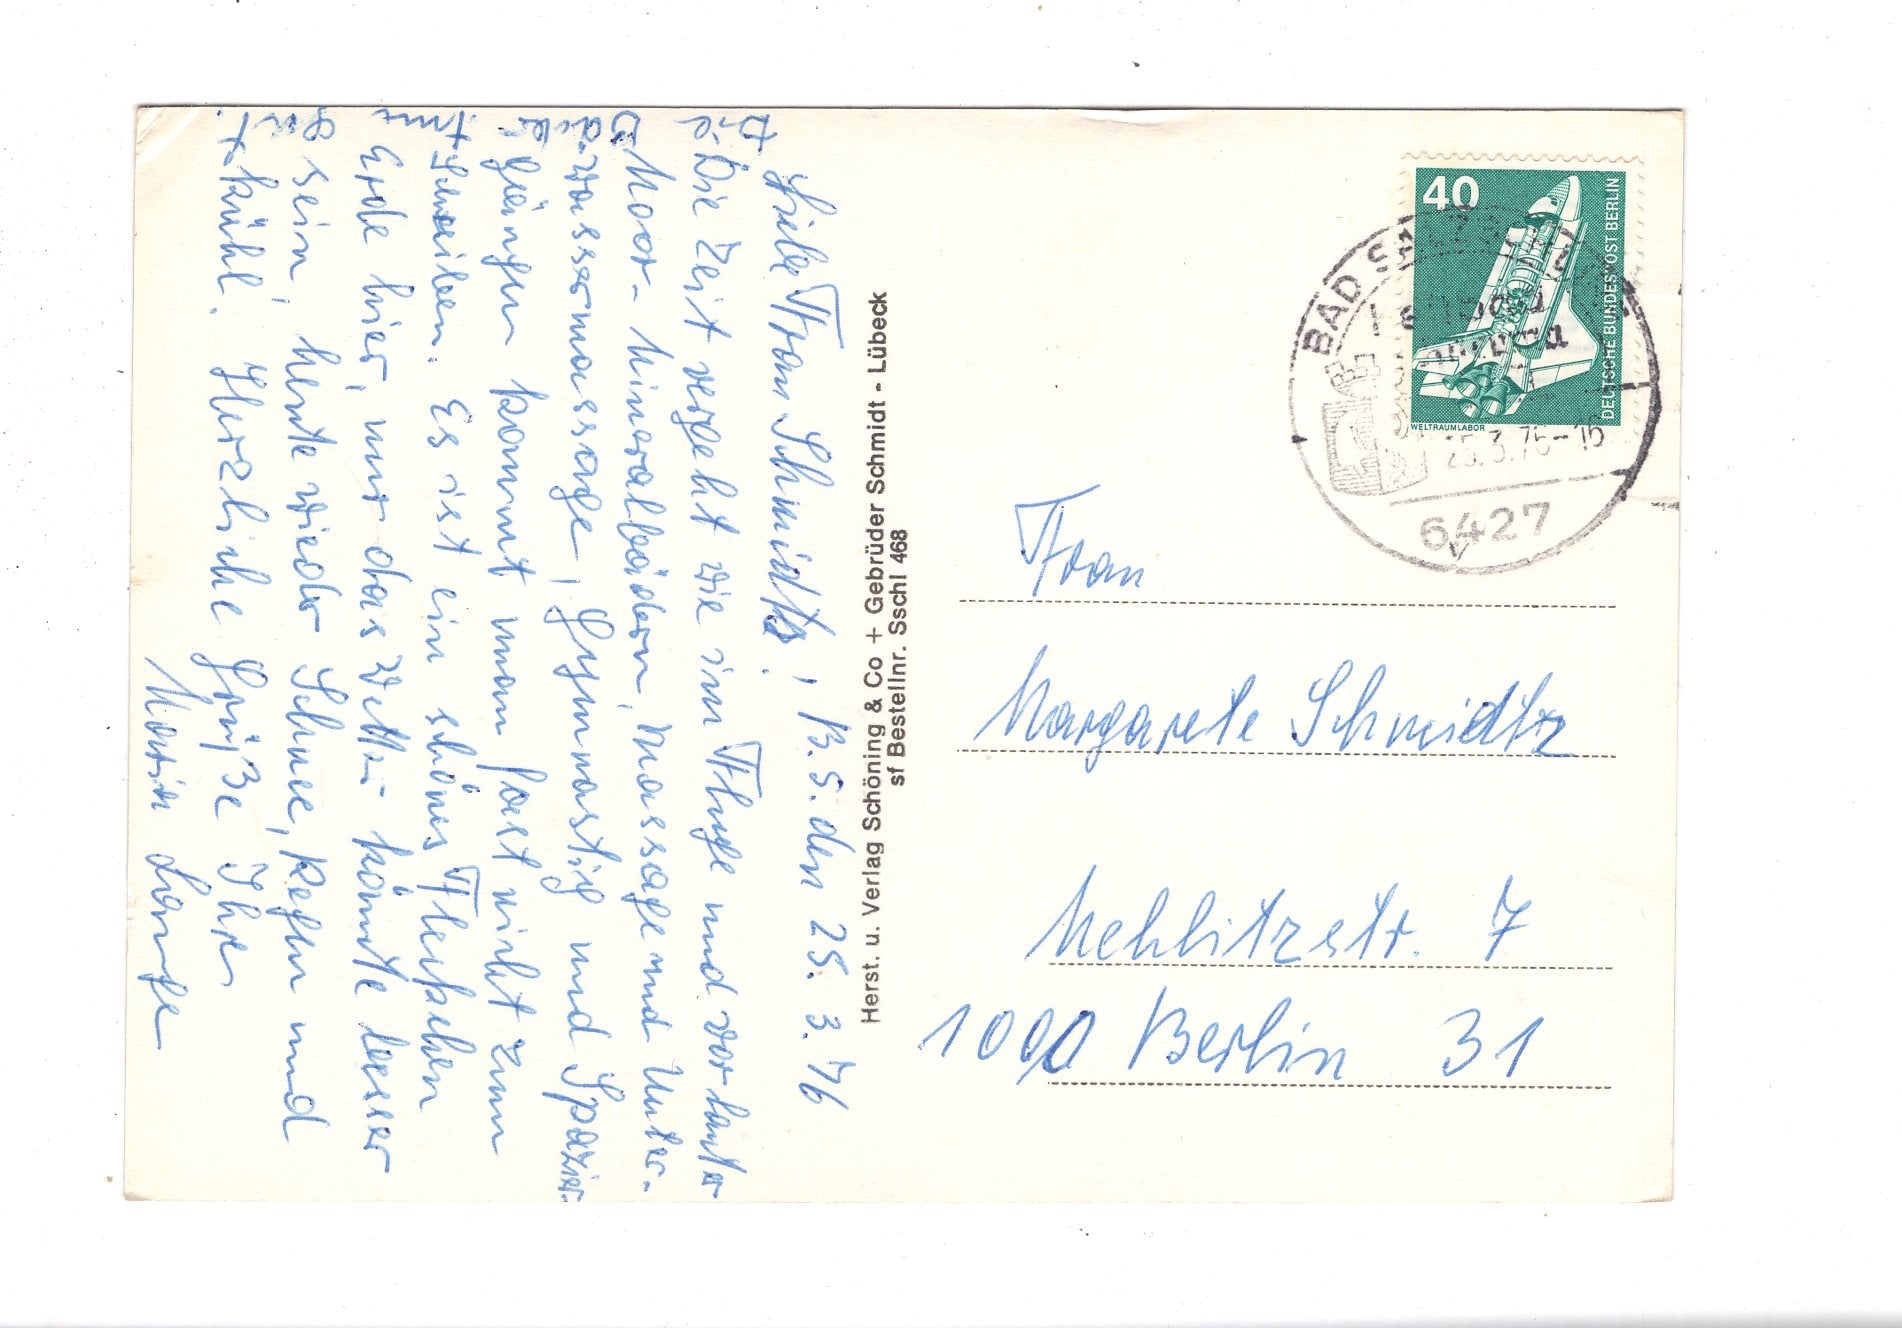 Liebe Frau Schmidtz, B. S. den 25. 3. 76
Die Zeit vergeht wie im Fluge und vor lauter
Moor- Mineralbädern, Massage und Unter-
wassermassage, Gymnastig und Spazier-
gängen kommt man fast nicht zum
Schreiben. Es ist ein schönes Fleckchen
Erde hier, nur das Wetter könnte besser
sein, heute wieder Schnee, Regen und
kühl. Herzliche Grüße Ihre
Herst. u. Verlag Schöning & Co + Gebrüder Schmidt - Lübeck
sf Bestellnr. Sschl 468
40
DEUTSCHE BUNDESPOST BERLIN
WELTRAUMLABOR
BAD
25.3.76-16
6427
Frau
Margarete Schmidtz
Mehlitzstr. 7
1000 Berlin 31